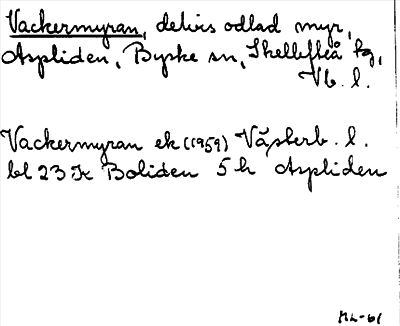 Vackermyran, delvis odlad myr,
Aspliden, Byske sn, Skellefteå tg,
Vb. l.
Vackermyran ek (1959) Västerb. l.
bl 23 K Boliden 5 h Aspliden
ML-61